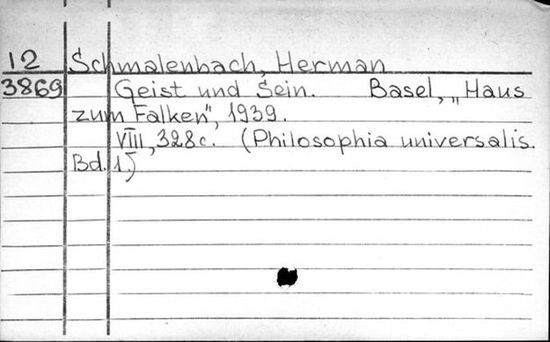 12 Schmalenbach, Herman
3869 Geist und Sein. Basel, „Haus
zum Falken", 1939.
VIII, 328c. (Philosophia universalis.
Bd. 1.)